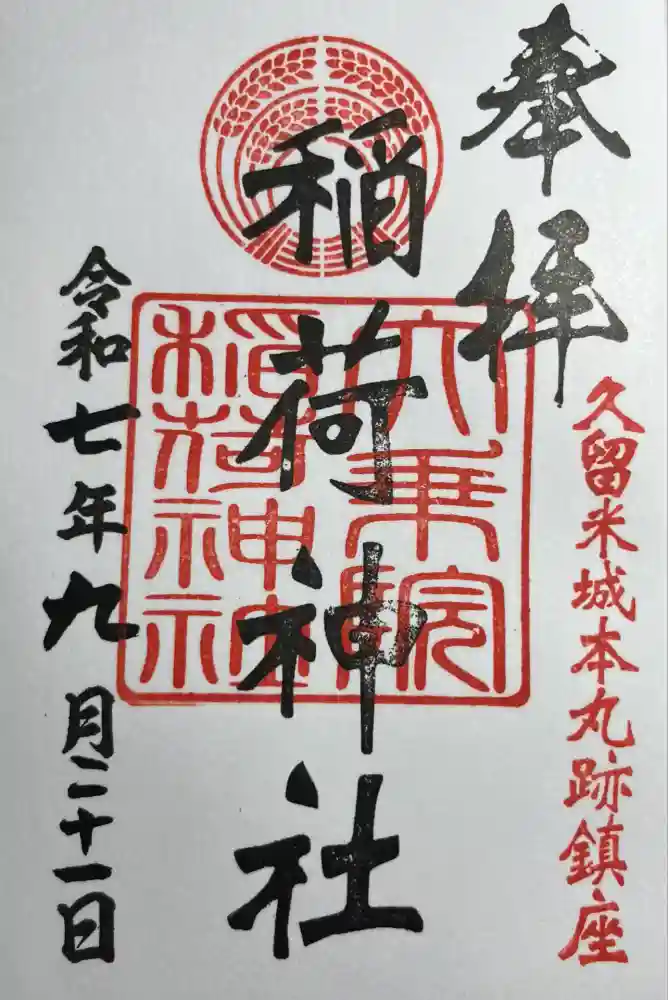 奉拝
久留米城本丸跡鎮座
稲荷神社
大乗院
稲荷神社
令和七年九月二十一日